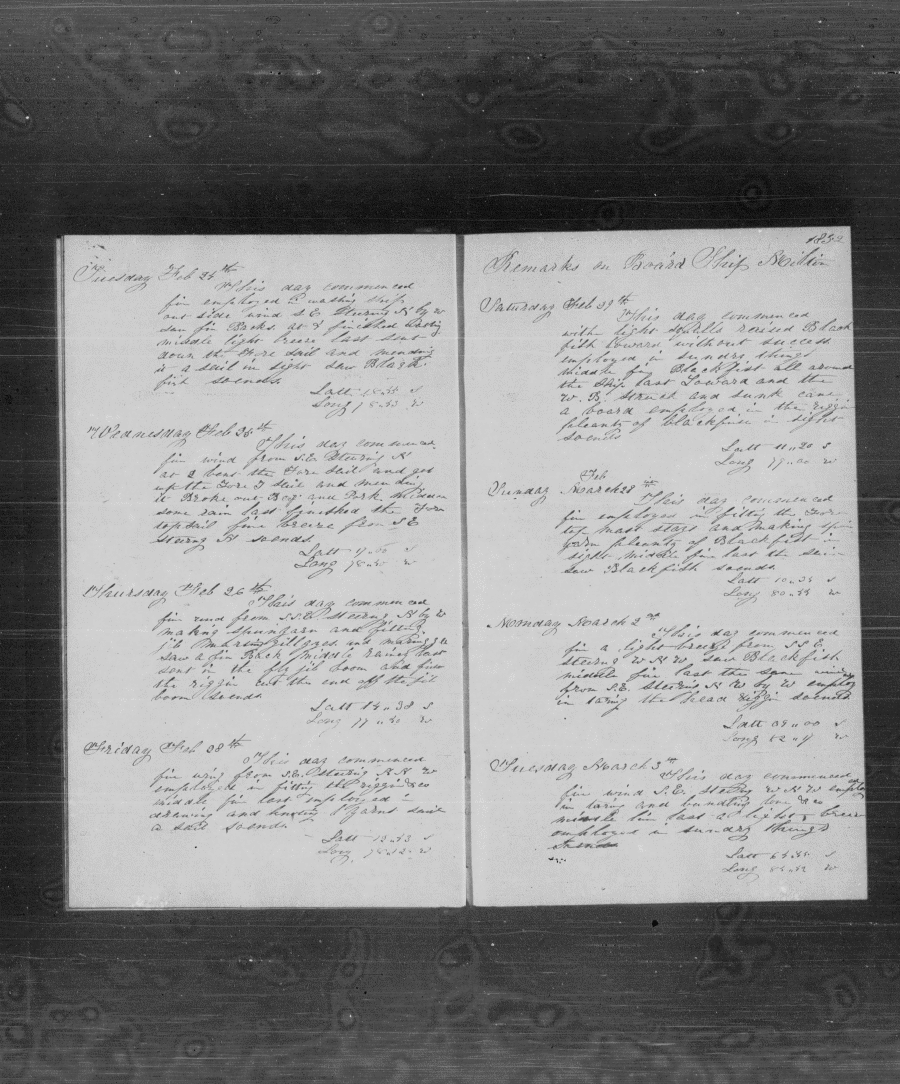 Tuesday Feb 24th
This day commenced
fin employed in washing Ship
out side wind S.E. Steering N by W
saw fin Backs at 8 finished
middle light breeze last sent
down the Fore Sail and mending
it a sail in sight saw Black
fish so ends
Latt S
Long W
Wednesday Feb 25th
This day commenced
fin wind from S.E. Steering N
at 2 bent the Fore Sail and got
up the Fore T Sail and mending
it Broke out and Pork middle
some rain last finished the Fore
topsail fine breeze from S.E
steering N so ends
Latt S
Long W
Thursday Feb 26th
This day commenced
fin wind from S.S.E. Steering N by W
making spunyarn and fitting
jib and making &c
saw a fin Back middle rainy last
sent in the flyjib boom and
the riggin cut the end off the jib
boom so ends
Latt 14 .. 38 S
Long 77 .. W
Friday Feb 28th
This day commenced
fin from S.E. Steering N N W
employed in fitting the riggin &co
middle fin last employed in
drawing and knoting Yarns saw
a sail so ends
Latt 12 .. 53 S
Long W
185
Remarks on Board Ship
Saturday Feb 29th
This day commenced
with light Squalls reaised Black
fish Loward without success
employed in sundry things
middle fin Blackfish all around
the Ship last Loward and the
W. B. Struck and sunk came
a board employed in the riggin
pleanty of blackfish in sight
so ends
Latt 11 .. 20 S
Long 79 .. 00 W
Feb
Sunday March 28th
This day commenced
fin employed in fitting the Fore
top mast stays and making spun
yarn pleanty of Blackfish in
sight middle fin last the same
saw Blackfish so ends
Latt 10 .. 34 S
Long 80 .. W
Monday March 2nd
This day commenced
fin a light breeze from S S E
steering W N W saw Blackfish
middle fin last the same
from S.E. Steering N W by W employ
in taring the head riggin so ends
Latt 08 .. 00 S
Long 82 .. W
Tuesday March 3th
This day commenced
fin wind S.E. Steering W N W employ
in taring and &co
middle fin last a light breeze
employed in sundry things
so ends
Latt S
Long W